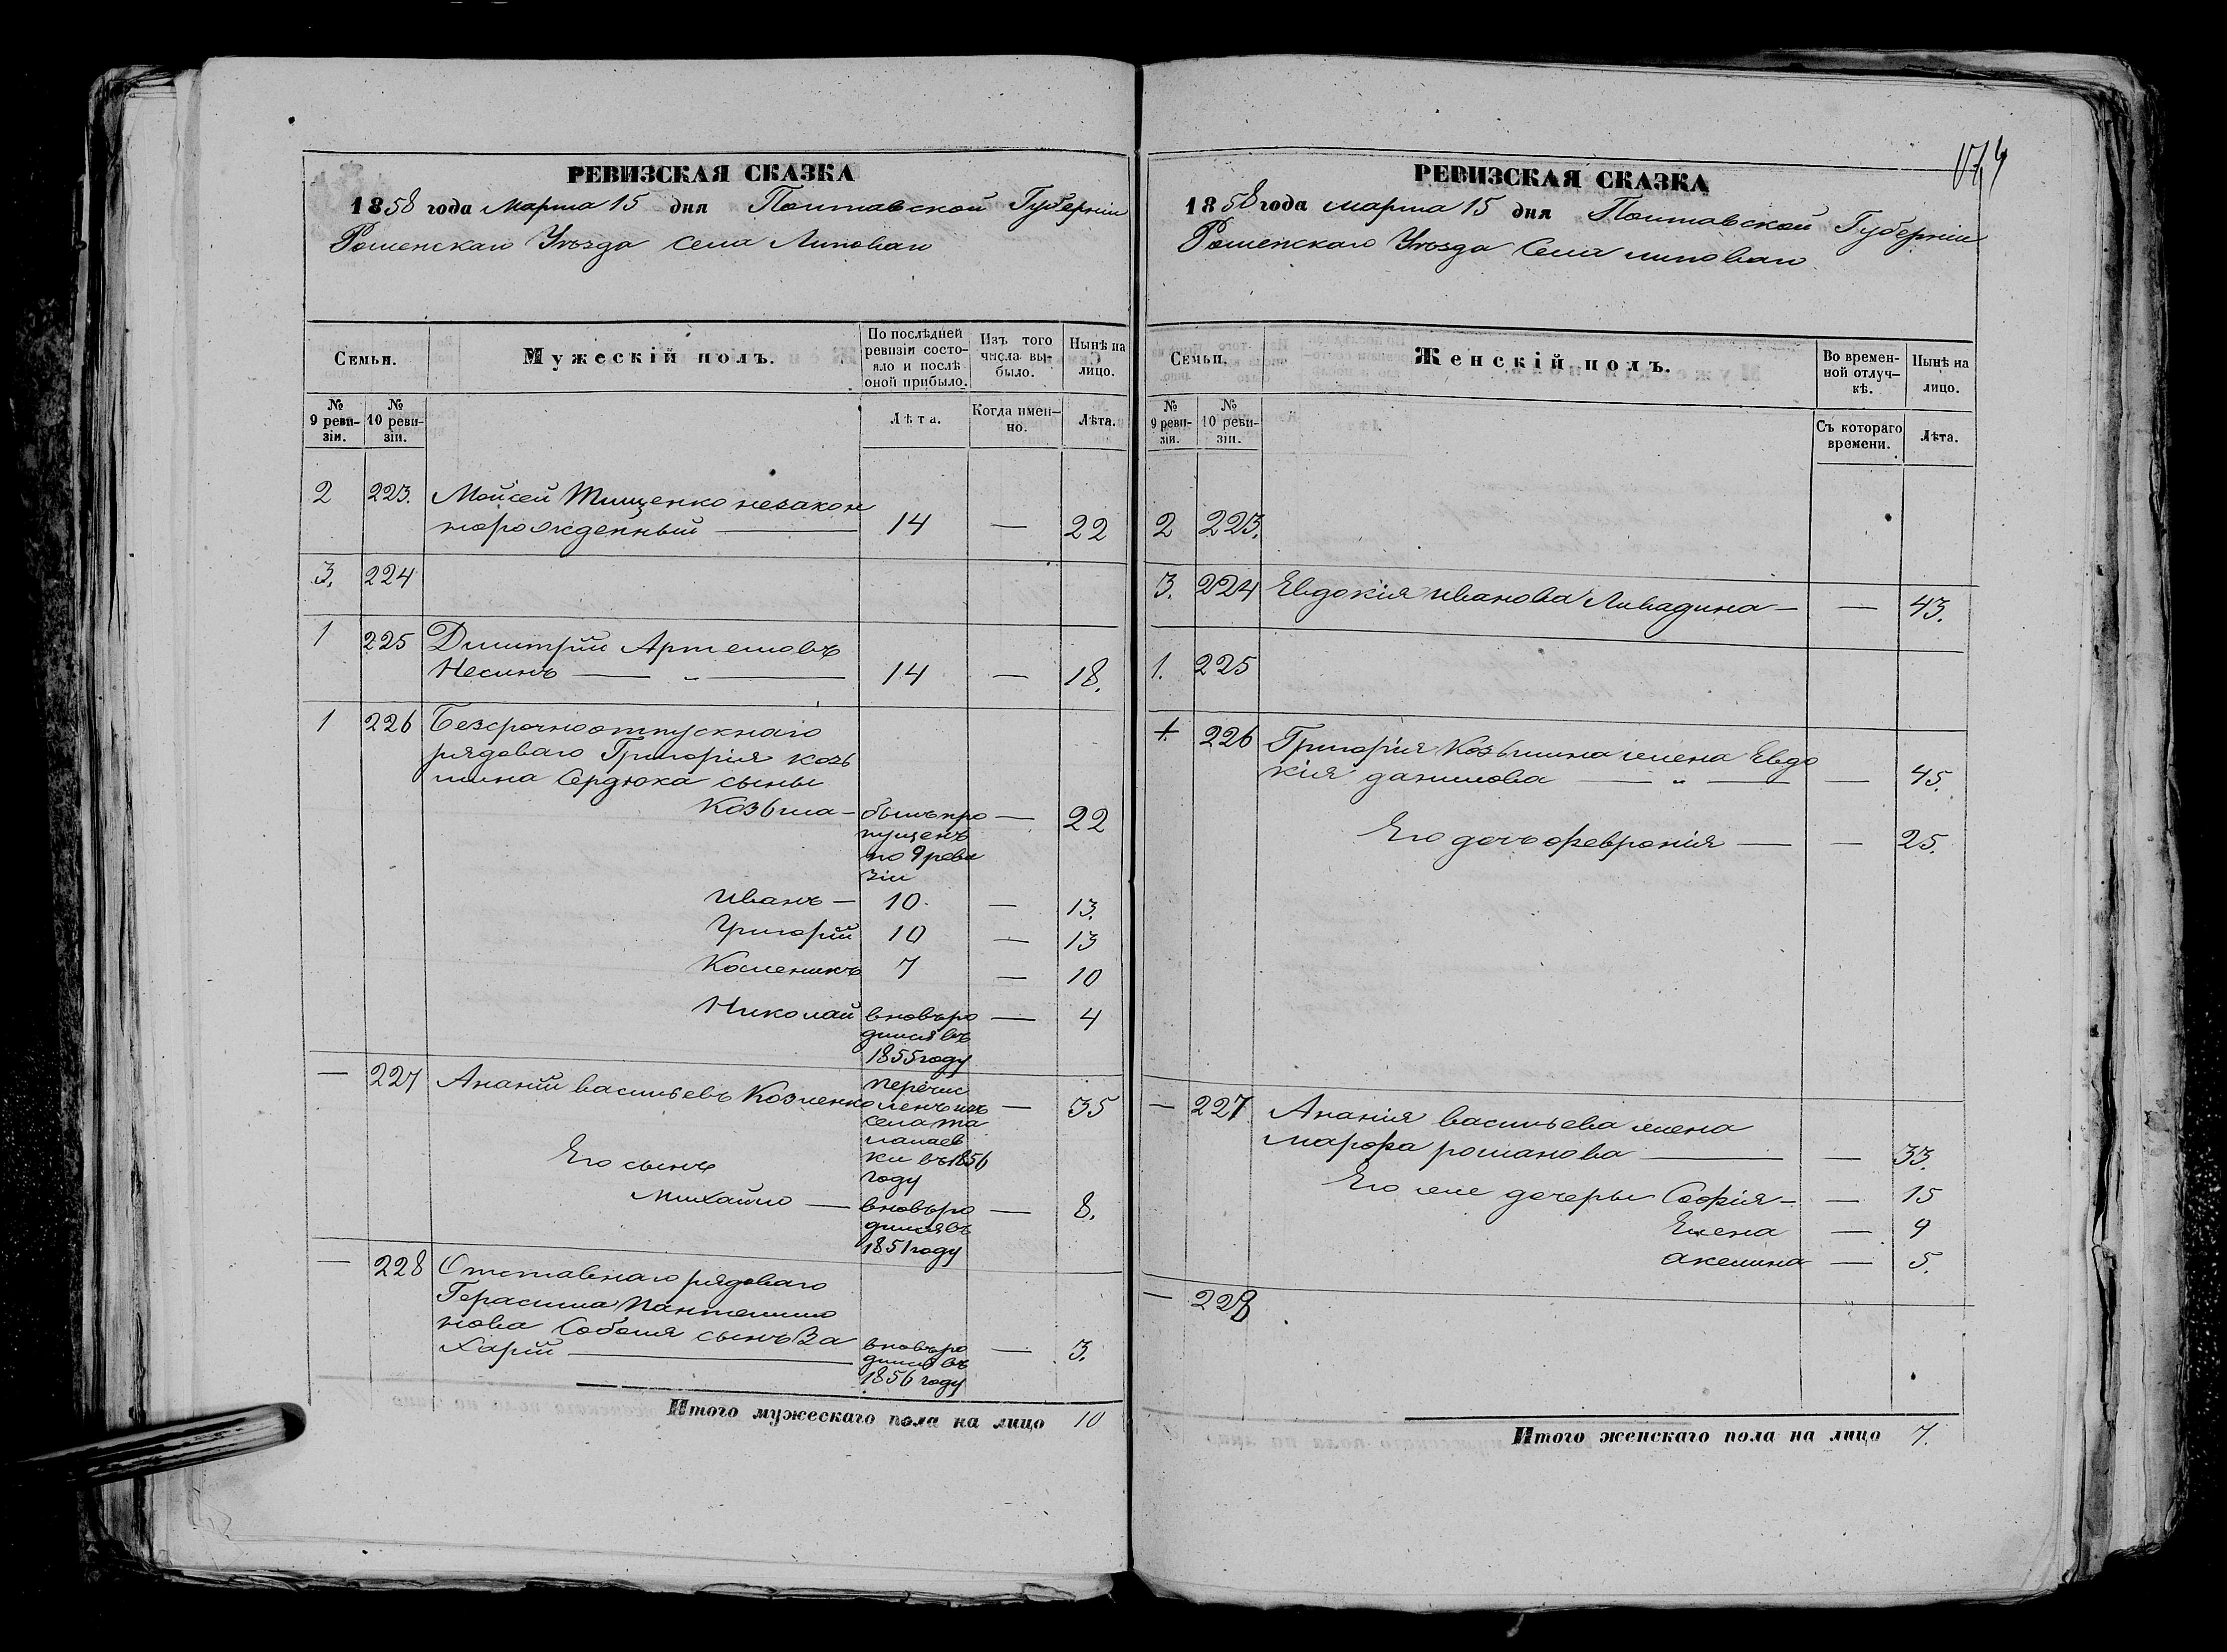 РЕВИЗСКАЯ СКАЗКА
1858 года Марта 15 дня Полтавской Губерніи
Роменскаго Уѣзда Села Липоваго
Семьи.
Мужескій полъ.
По послѣдней ревизіи состояло и послѣ оной прибыло.
Изъ того числа выбыло.
Нынѣ на лицо.
№ 9 ревизіи.
№ 10 ревизіи.
Лѣта.
Когда именно.
Лѣта.
2 223. Мойсей Тищенко незакон
норожденный — 14 — 22
3. 224
1 225 Димитрій Артемовъ
Несинъ — „ — 14 — 18.
1 226 Безсрочноотпускнаго
рядоваго Григорія Козь
мина Сердюка сыны
Козьма — былъ про — 22
пущенъ
по 9 реви
зіи
Иванъ — 10. — 13.
Григорій 10 — 13
Калиникъ 7 — 10
Николай вновь ро — 4
дился въ
1855 году
— 227 Ананій Васильевъ Козленко перечис — 35
ленъ изъ
села Та
лалаев
ки въ 1856
году
Его сынъ
Михайло — вновь ро — 8.
дился въ
1851 году
— 228 Отставнаго рядоваго
Герасима Пантелимо
нова Соболя сынъ За
харій — вновь ро — 3.
дился въ
1856 году
Итого мужескаго пола на лицо 10
РЕВИЗСКАЯ СКАЗКА
1858 года марта 15 дня Полтавской Губерніи
Роменскаго Уѣзда Села липоваго
Семьи.
Женскій полъ.
Во временной отлучкѣ.
Нынѣ на лицо.
№ 9 ревизіи.
№ 10 ревизіи.
Съ котораго времени.
Лѣта.
2 223.
3. 224 Евдокія иванова Ливадина — — 43.
1. 225
1. 226 Григорія Козьмина жена Евдо
кія данилова — „ — — 45.
Его дочь Февронія — — 25.
— 227 Ананія васильева жена
Марфа романова — — 33.
Его же дочери Софія — — 15
Елена — 9
акелина — 5.
— 228
Итого женскаго пола на лицо 7.